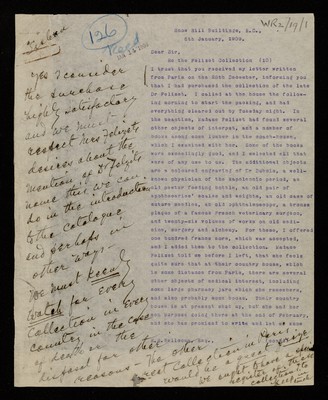 WA2/19/1
126
Recd
Snow Hill Buildings, E.C.
5th January, 1929.
Dear Sir,
On the Felizet Collection (10)
I trust that you received my letter written
from Paris on the 30th December, informing you
that I had purchased the collection of the late
Dr Felizet. I called at the house the follow-
ing morning to start the packing, and had
everything cleared out by Tuesday night. In
the meantime, Madame Felizet had found several
other objects of interest, and a number of
books among some linen in the coach-house,
which I examined with her. Some of the books
are exceedingly good, and I selected all that
were of any use to us. The additional objects
are a coloured
old pewter feeding bottle, an old pair of
apothecaries' scales and weights, an old case of
plaque of a famous French veterinary surgeon,
and twenty-six volumes of works on old medi-
cine, surgery and alchemy. For these, I offered
one hundred francs more, which was accepted,
and I added them to the collection. Madame
Felizet told me before I left, that she feels
quite sure that at their country house, which
is some distance from Paris, there are several
other objects of medical interest, including
some large pharmacy jars which she remembers,
and also probably some books. Their country
house is at present shut up, but she and her
son propose going there at the end of February,
and she has promised to write and let me know
Yes I consider
the purchase
highly satisfactory
and we must
respect Mrs Felizets
desires about the
mention of Dr Felizets
name this we can
do in the introduction
to the catalogue
and perhaps in
other ways
We must keep
watch for every
collection in every
country in the case
of death or
disposal for other
reasons - The other
great collection in Paris
would be a great prize
We ought to have a
register of all these
collections in